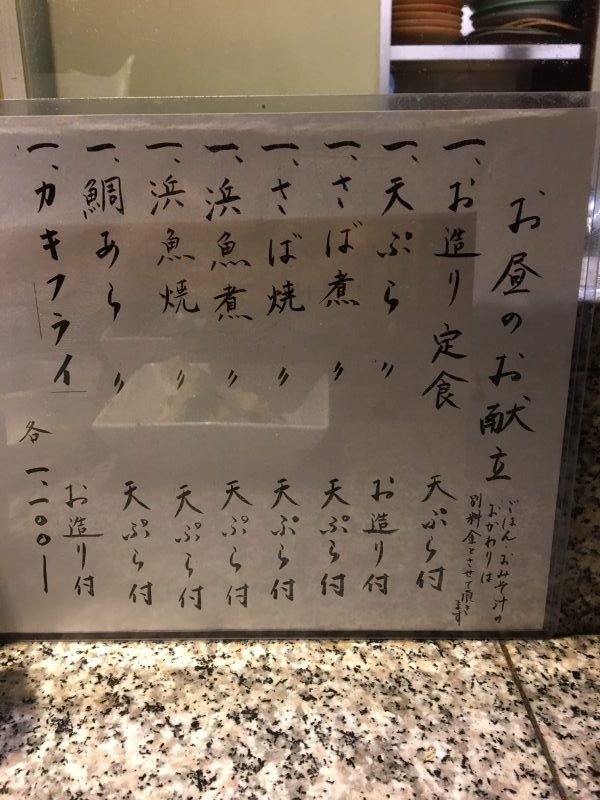 お昼のお献立
ごはん、おみそ汁の
おかわりは
別料金とさせて頂き
ます
一、お造り定食 天ぷら付
一、天ぷら 〃 お造り付
一、さば煮 〃 天ぷら付
一、さば焼 〃 天ぷら付
一、浜魚煮 〃 天ぷら付
一、浜魚焼 〃 天ぷら付
一、鯛あら 〃 天ぷら付
一、カキフライ お造り付
各一、一〇〇ー